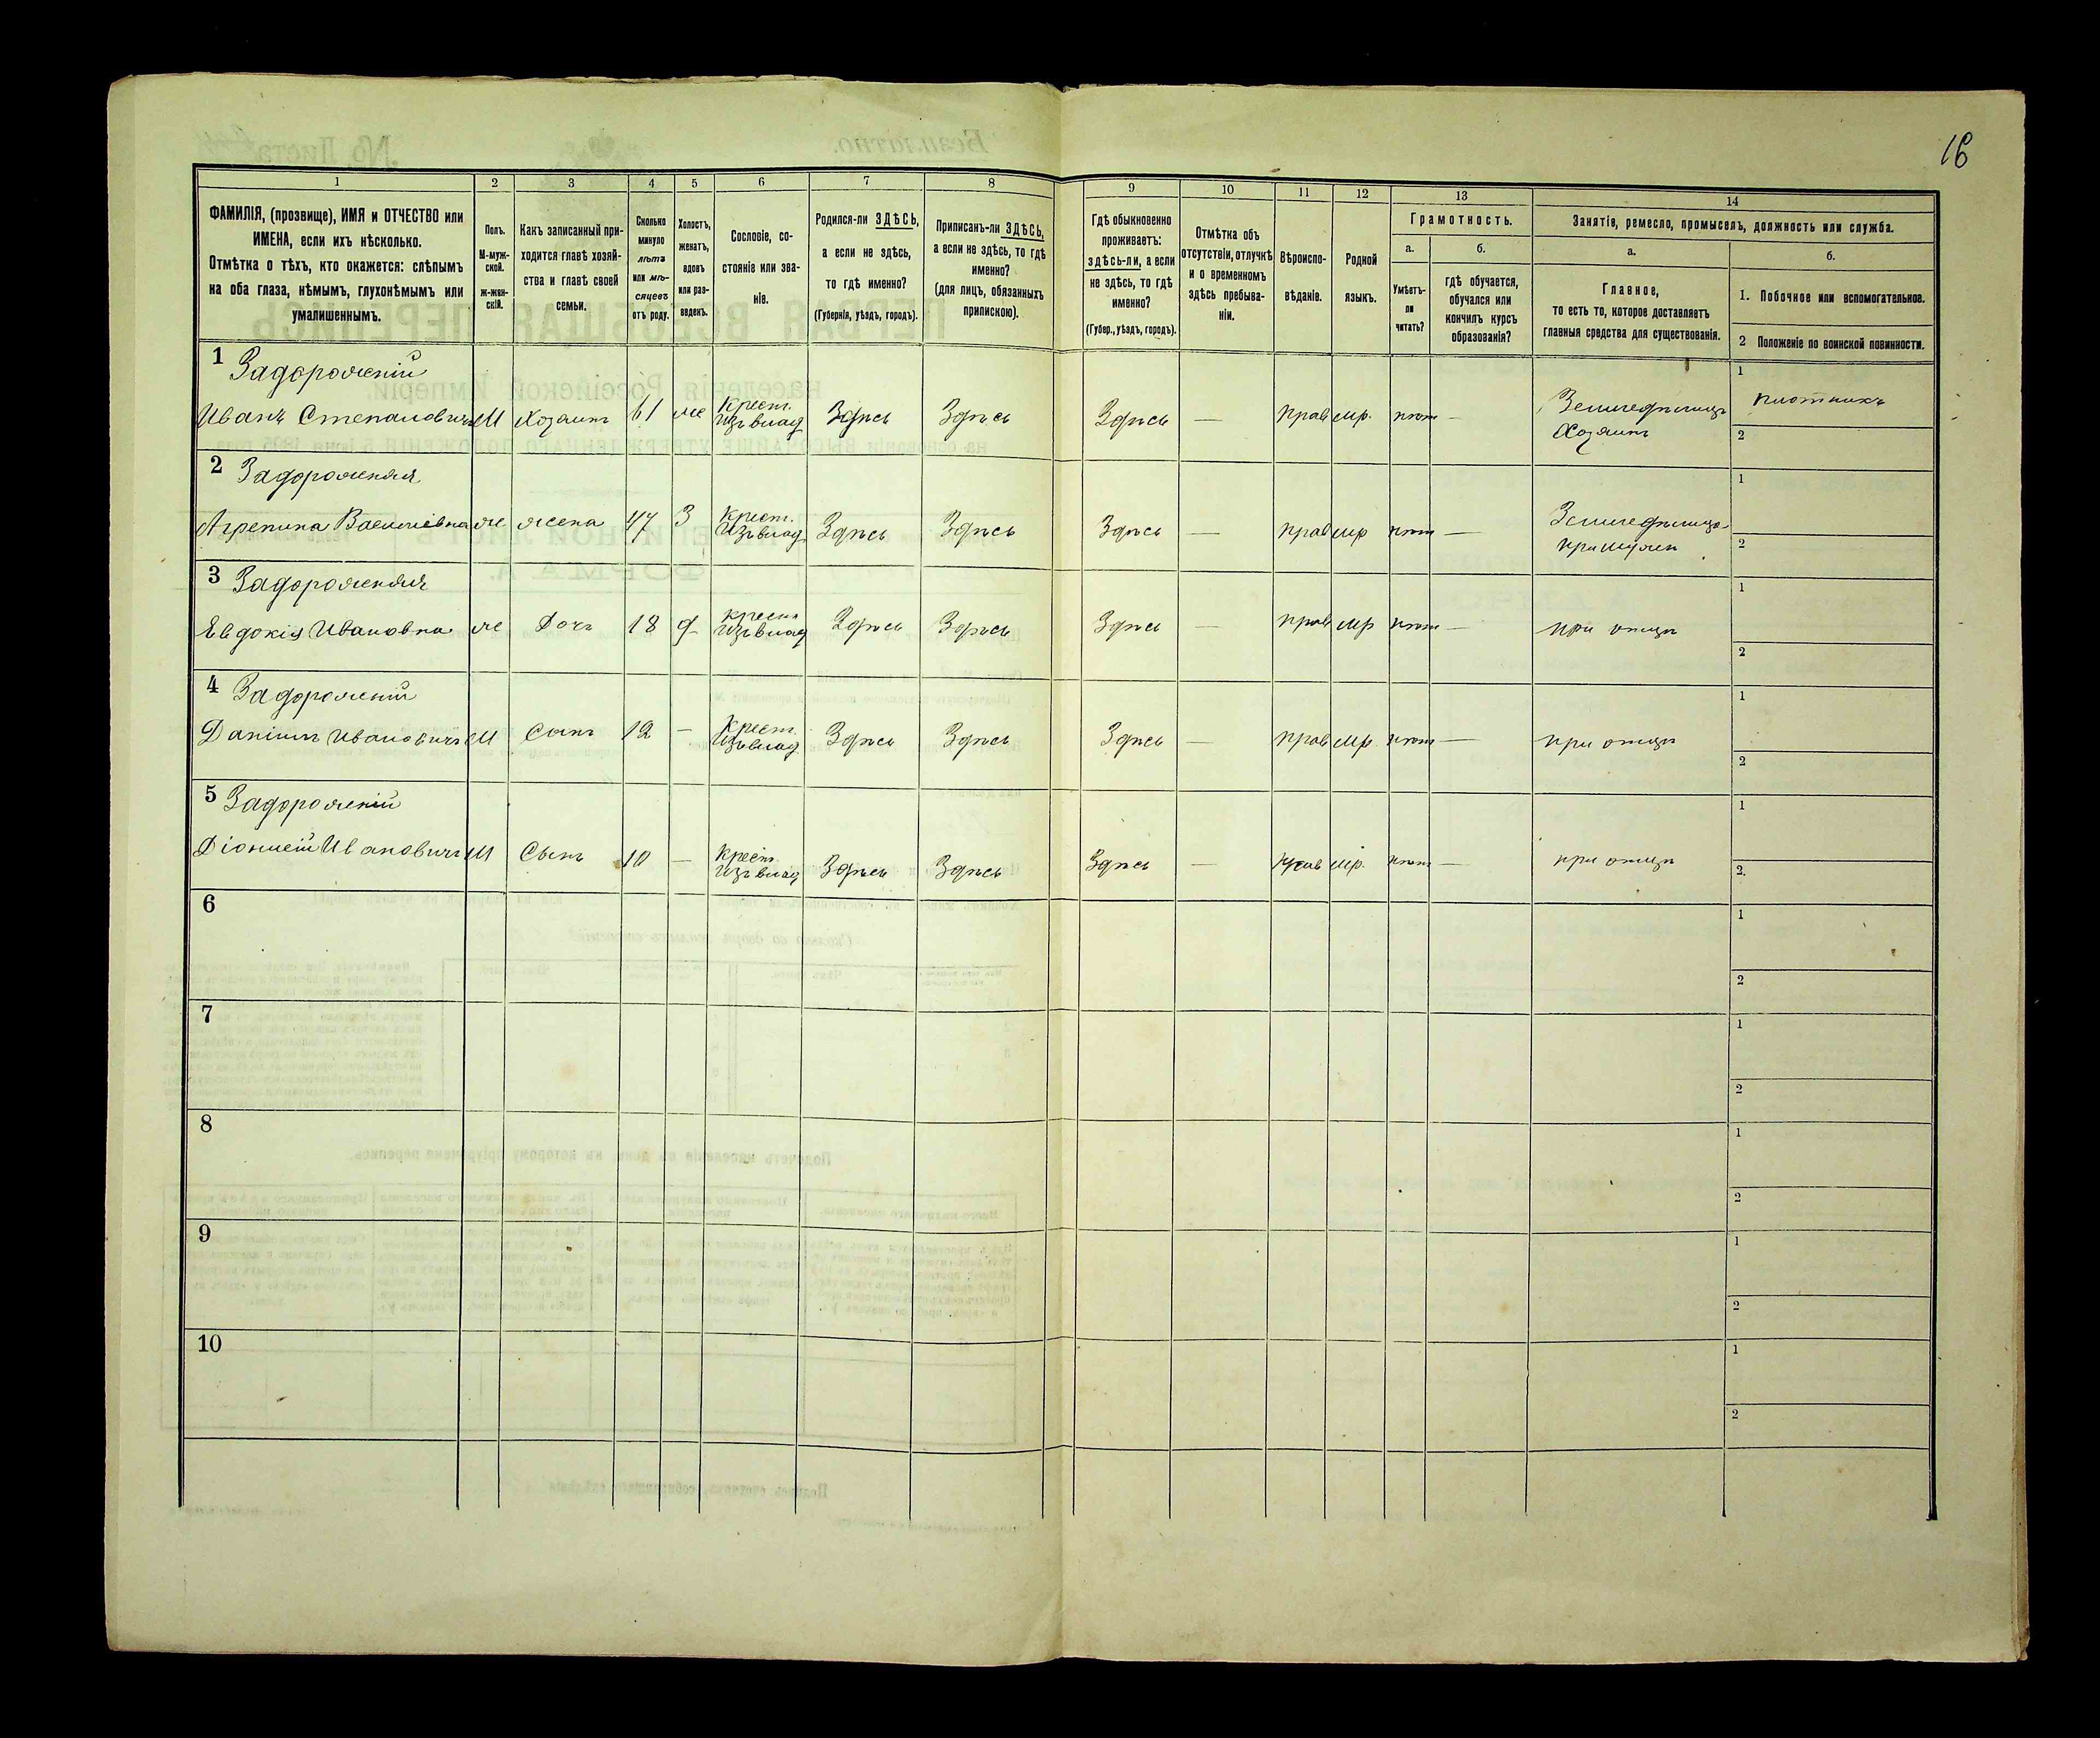 16
1
2
3
4
5
6
7
8
9
10
11
12
13
14
ФАМИЛІЯ, (прозвище), ИМЯ и ОТЧЕСТВО или
ИМЕНА, если ихъ нѣсколько.
Отмѣтка о тѣхъ, кто окажется: слѣпымъ
на оба глаза, нѣмымъ, глухонѣмымъ или
умалишеннымъ.
Полъ.
М-муж-
ской.
ж-жен-
скій.
Какъ записанный при-
ходится главѣ хозяй-
ства и главѣ своей
семьи.
Сколько
минуло
лѣтъ
или мѣ-
сяцевъ
отъ роду.
Холостъ,
женатъ,
вдовъ
или раз-
веденъ.
Сословіе, со-
стояніе или зва-
ніе.
Родился-ли ЗДѢСЬ,
а если не здѣсь,
то гдѣ именно?
(Губернія, уѣздъ, городъ).
Приписанъ-ли ЗДѢСЬ,
а если не здѣсь, то гдѣ
именно?
(для лицъ, обязанныхъ
припискою).
Гдѣ обыкновенно
проживаетъ:
здѣсь-ли, а если
не здѣсь, то гдѣ
именно?
(Губер., уѣздъ, городъ).
Отмѣтка объ
отсутствіи, отлучкѣ
и о временномъ
здѣсь пребыва-
ніи.
Вѣроиспо-
вѣданіе.
Родной
языкъ.
Грамотность.
а.
Умѣетъ-
ли
читать?
б.
гдѣ обучается,
обучался или
кончилъ курсъ
образованія?
Занятіе, ремесло, промыселъ, должность или служба.
а.
Главное,
то есть то, которое доставляетъ
главныя средства для существованія.
б.
1. Побочное или вспомогательное.
2 Положеніе по воинской повинности.
1 Задорожній
Иванъ Степановичъ М Хозяинъ 61 же Крест. Изъ влад Здѣсь Здѣсь Здѣсь — прав мр. нѣт — Земледѣлецъ Хозяинъ
1 плотникъ
2
2 Задорожняя
Агрепина Василіевна ж жена 47 З Крест. Изъ влад Здѣсь Здѣсь Здѣсь — прав мр нѣт — при мужѣ
1
2
3 Задорожняя
Евдокія Ивановна ж Дочь 18 д Крест. Изъ влад Здѣсь Здѣсь Здѣсь — прав мр нѣт — при отцѣ
1
2
4 Задорожній
Даніилъ Ивановичъ М Сынъ 12 — Крест. Изъ влад Здѣсь Здѣсь Здѣсь — прав мр. нѣт — при отцѣ
1
2
5 Задорожній
Діонисій Ивановичъ М Сынъ 10 — Крест. Изъ влад Здѣсь Здѣсь Здѣсь — прав мр. нѣт — при отцѣ
1
2.
6
1
2
7
1
2
8
1
2
9
1
2
10
1
2